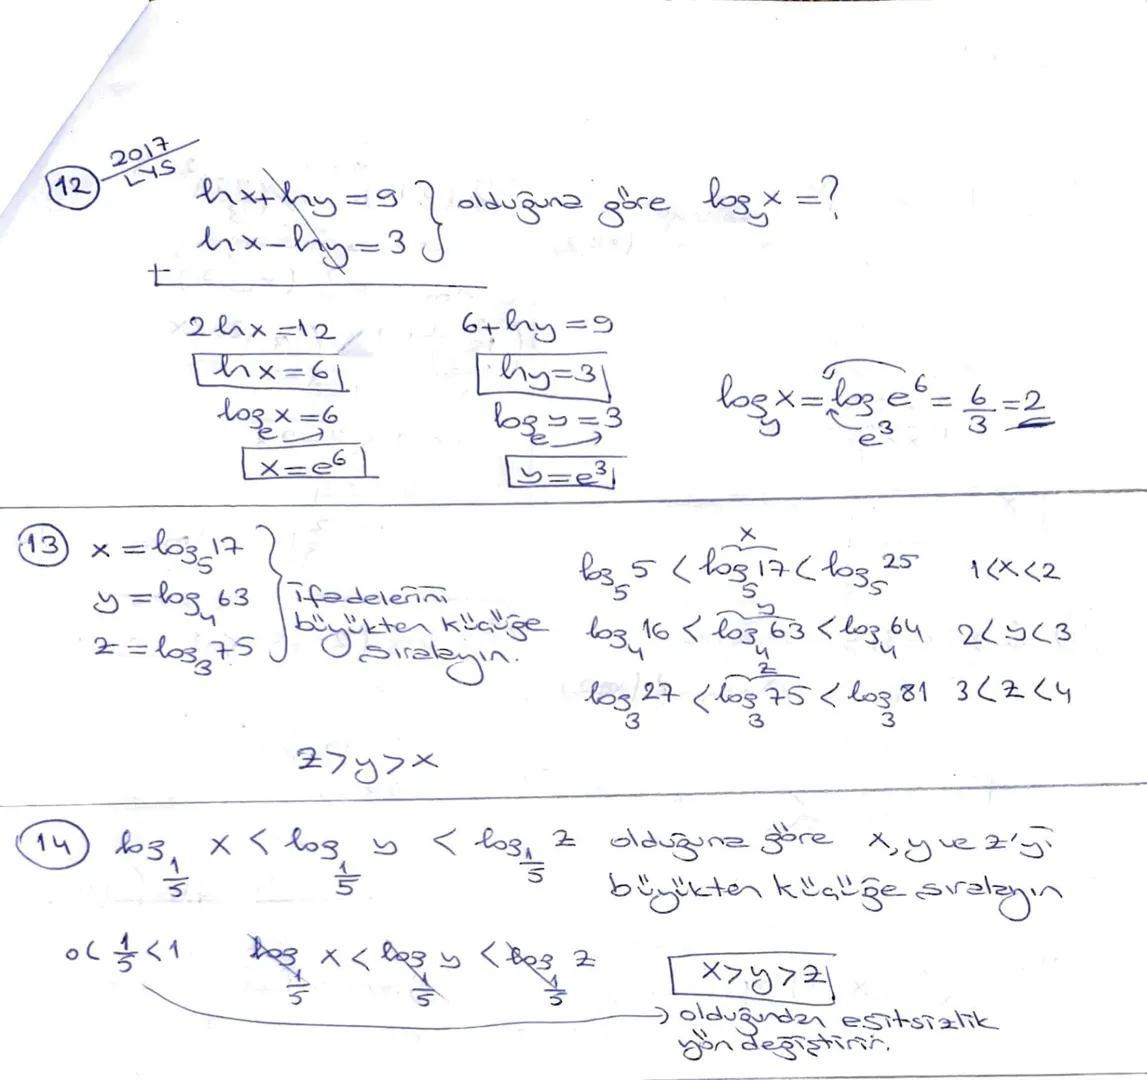 12 2017 LYS
lnx+lny=9
lnx-lny=3 } olduğuna göre log_y x =?
+
2lnx=12 6+lny=9
lnx=6 lny=3
log_e x=6 log_e y=3 log_y x = log_{e^3} e^6 = 6/3 = 2
x=e^6 y=e^3
13 x = log_5 17
y = log_4 63
z = log_3 75 } ifadelerini
büyükten küçüğe
sıralayın.
x
log_5 5 < log_5 17 < log_5 25 1<x<2
y
log_4 16 < log_4 63 < log_4 64 2<y<3
z
log_3 27 < log_3 75 < log_3 81 3<z<4
z>y>x
14 log_{1/5} x < log_{1/5} y < log_{1/5} z olduğuna göre x, y ve z'yi
büyükten küçüğe sıralayın
0<1/5<1 log_{1/5} x < log_{1/5} y < log_{1/5} z x>y>z
→ olduğundan eşitsizlik
yön değiştirir.